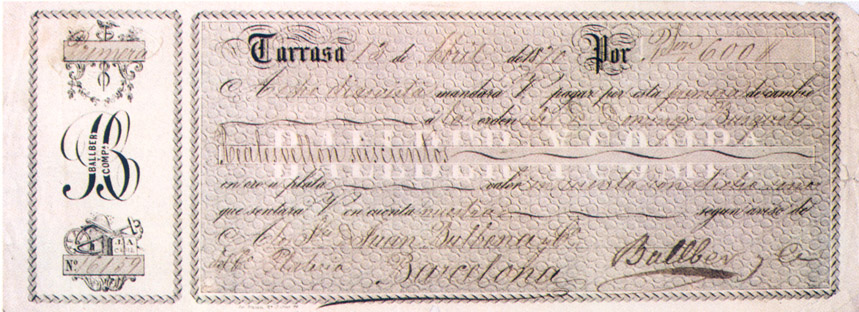 Primera
BALLBER Y COMPA
Nº
Tarrasa 12 de Abril de 1870 Por Rs vn 600 #
A ocho dias vista mandará V. pagar por esta primera de cambio
a la orden de D. Domingo Busquets
BALLBER Y COMPA
Reales vellon seiscientos
en oro o plata valor en cuenta con dicho Señor
que sentará V. en cuenta nuestra segun aviso de
A los Sres. Juan Balbena y Cª
Barcelona
Ballber y Cª